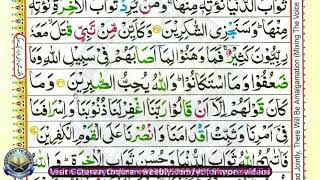 ثَوَابَ الدُّنْيَا نُؤْتِهٖ مِنْهَا ۚ وَمَنْ يُّرِدْ ثَوَابَ الْاٰخِرَةِ نُؤْتِهٖ
مِنْهَا ؕ وَسَنَجْزِى الشّٰكِرِيْنَ ۝ وَكَاَيِّنْ مِّنْ نَّبِىٍّ قٰتَلَ ۙ مَعَهٗ
رِبِّيُّوْنَ كَثِيْرٌ ۚ فَمَا وَهَنُوْا لِمَاۤ اَصَابَهُمْ فِىْ سَبِيْلِ اللّٰهِ وَمَا
ضَعُفُوْا وَمَا اسْتَكَانُوْا ؕ وَاللّٰهُ يُحِبُّ الصّٰبِرِيْنَ ۝ وَمَا
كَانَ قَوْلَهُمْ اِلَّاۤ اَنْ قَالُوْا رَبَّنَا اغْفِرْ لَنَا ذُنُوْبَنَا وَاِسْرَافَنَا
فِىْۤ اَمْرِنَا وَثَبِّتْ اَقْدَامَنَا وَانْصُرْنَا عَلَى الْقَوْمِ الْكٰفِرِيْنَ ۝
فَاٰتٰىهُمُ اللّٰهُ ثَوَابَ الدُّنْيَا وَحُسْنَ ثَوَابِ الْاٰخِرَةِ ؕ وَاللّٰهُ
ad Jointly, There Will Be Amalgamation (Mixing The Voice
Visit